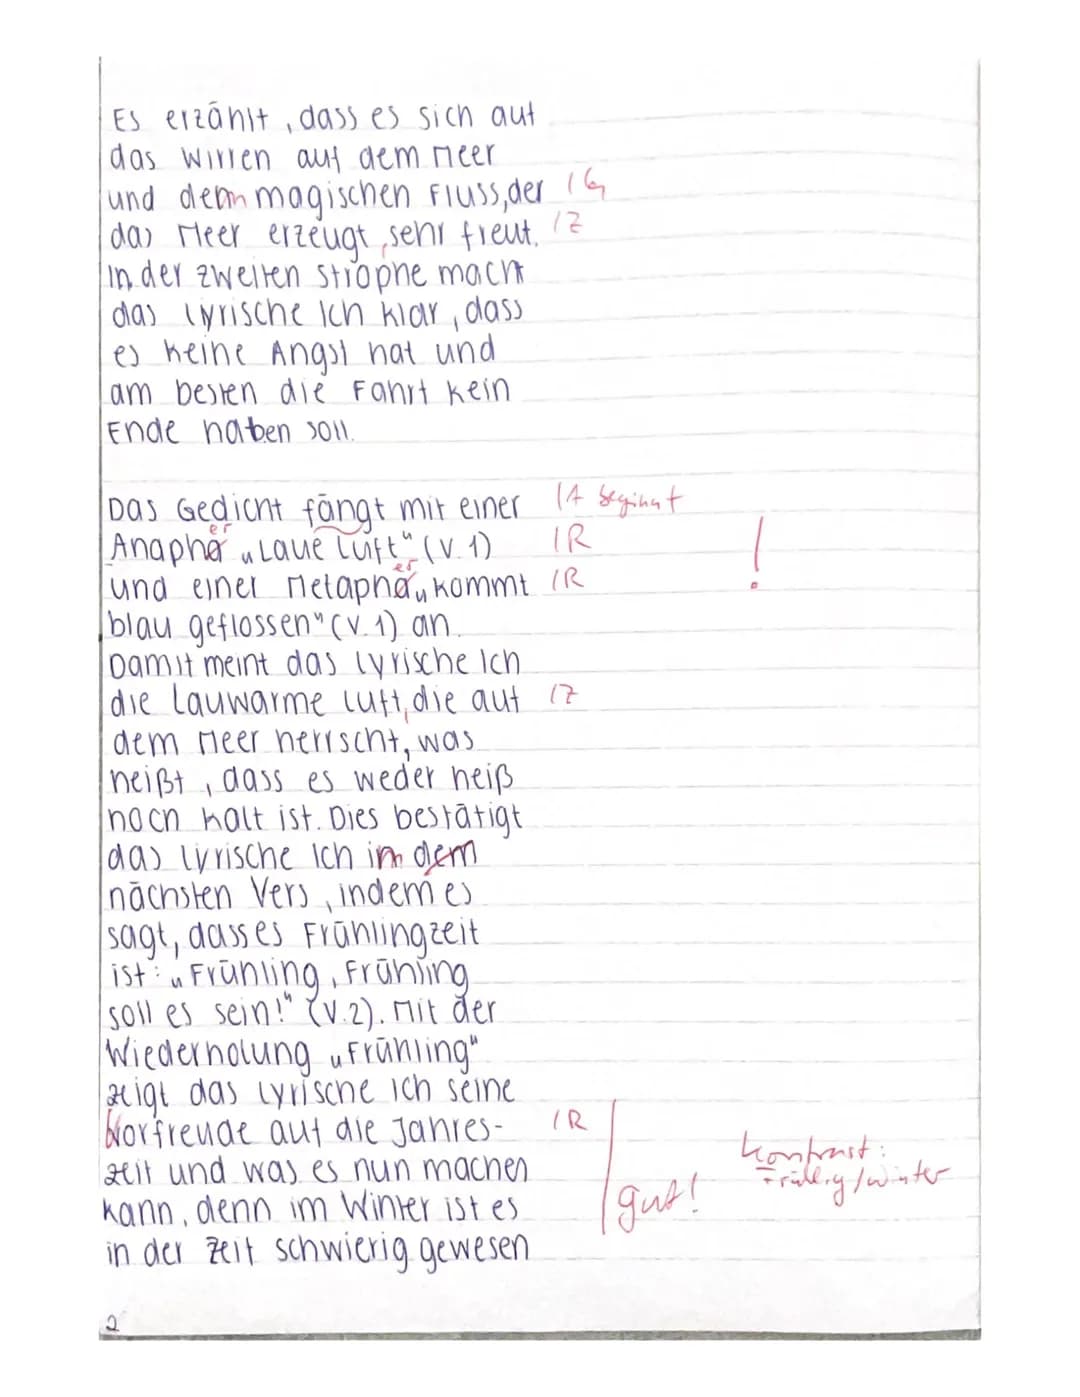 Es erzählt, dass es sich auf
das Wirren auf dem Meer
und dem magischen Fluss, der |G
das Meer erzeugt, sehr freut. |Z
In der zweiten Strophe macht
das lyrische Ich klar, dass
es keine Angst hat und
am besten die Fahrt kein
Ende haben soll.
Das Gedicht fängt mit einer |A beginnt
er
Anapha „Laue Luft" (V.1) |R !
er
und einer Metapha „kommt |R
blau geflossen" (V.1) an.
Damit meint das lyrische Ich
die lauwarme Luft, die auf |Z
dem Meer herrscht, was
heißt, dass es weder heiß
noch kalt ist. Dies bestätigt
das lyrische Ich im dem
nächsten Vers, indem es
sagt, dass es Frühlingzeit
ist: „Frühling, Frühling
soll es sein!" (V.2). Mit der
Wiederholung „Frühling"
zeigt das lyrische Ich seine
Vorfreude auf die Jahres- |R
zeit und was es nun machen
kann, denn im Winter ist es
in der Zeit schwierig gewesen
gut!
Kontrast:
Frühling/Winter
2